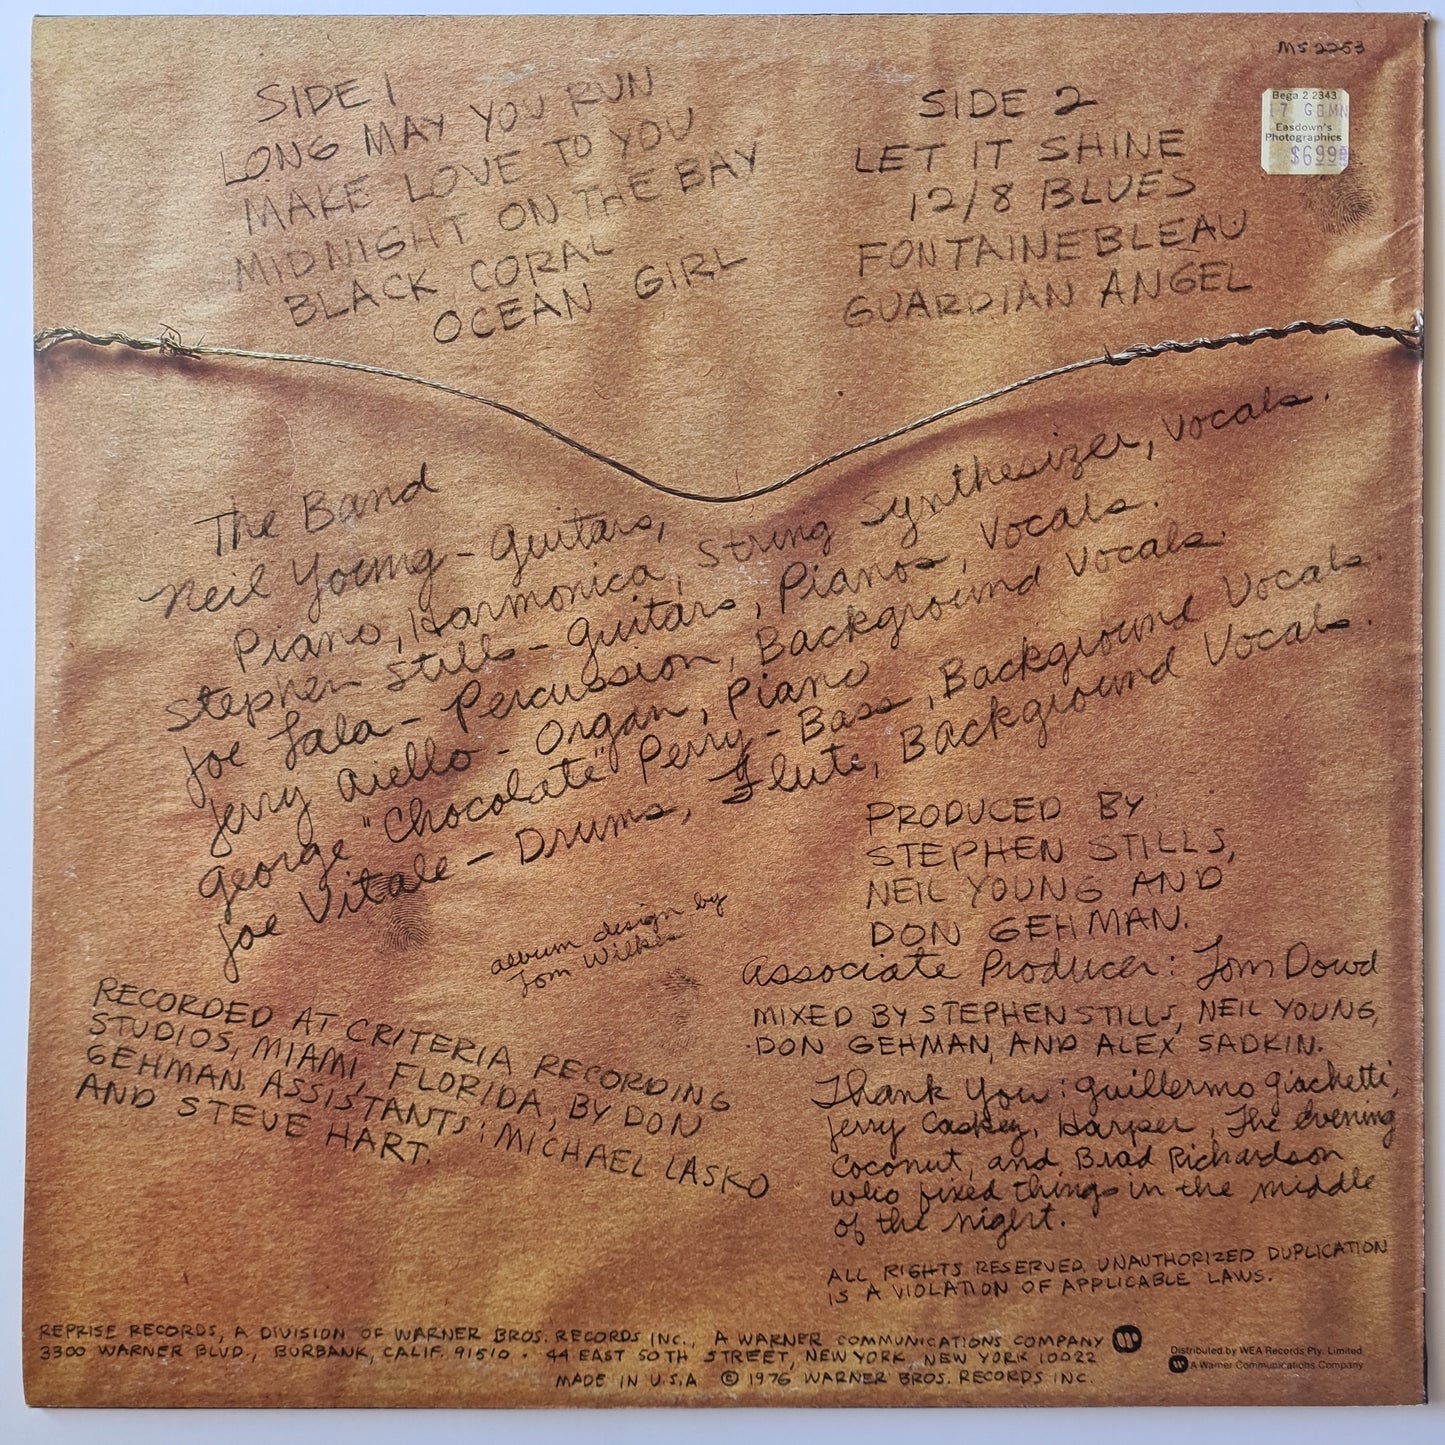 MS 2253
Bega 2 2343
17 GBMN
Easdown's
Photographics
$6999
SIDE 1
LONG MAY YOU RUN
MAKE LOVE TO YOU
MIDNIGHT ON THE BAY
BLACK CORAL
OCEAN GIRL
SIDE 2
LET IT SHINE
12/8 BLUES
FONTAINEBLEAU
GUARDIAN ANGEL
The Band
Neil Young - Guitars,
Piano, Harmonica, String Synthesizer, Vocals.
Stephen Stills - Guitars, Pianos, Vocals.
Joe Lala - Percussion, Background Vocals.
Jerry Aiello - Organ, Piano
George "Chocolate" Perry - Bass, Background Vocals.
Joe Vitale - Drums, Flute, Background Vocals.
album design by
Tom Wilkes
PRODUCED BY
STEPHEN STILLS,
NEIL YOUNG AND
DON GEHMAN.
Associate Producer: Tom Dowd
MIXED BY STEPHEN STILLS, NEIL YOUNG,
DON GEHMAN, AND ALEX SADKIN.
RECORDED AT CRITERIA RECORDING
STUDIOS, MIAMI, FLORIDA, BY DON
GEHMAN. ASSISTANTS: MICHAEL LASKO
AND STEVE HART.
Thank You: Guillermo Giachetti,
Jerry Caskey, Harper, The evening
Coconut, and Brad Richardson
who fixed things in the middle
of the night.
ALL RIGHTS RESERVED. UNAUTHORIZED DUPLICATION
IS A VIOLATION OF APPLICABLE LAWS.
REPRISE RECORDS, A DIVISION OF WARNER BROS. RECORDS INC., A WARNER COMMUNICATIONS COMPANY
3300 WARNER BLVD., BURBANK, CALIF. 91510 · 44 EAST 50TH STREET, NEW YORK, NEW YORK 10022
MADE IN U.S.A © 1976 WARNER BROS. RECORDS INC.
Distributed by WEA Records Pty. Limited
A Warner Communications Company